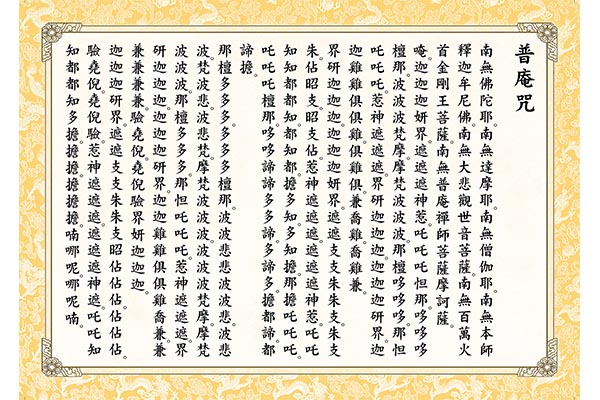 普庵咒
南無佛陀耶。南無達摩耶。南無僧伽耶。南無本師
釋迦牟尼佛。南無大悲觀世音菩薩。南無百萬火
首金剛王菩薩。南無普庵禪師菩薩摩訶薩。
唵。迦迦迦妍界。遮遮遮神惹。吒吒吒怛那。哆哆哆
檀那。波波波梵摩。摩梵波波波。那檀哆哆哆。那怛
吒吒吒。惹神遮遮遮。界研迦迦迦。迦迦迦研界。迦
迦雞雞俱俱雞俱雞。兼喬雞喬雞兼。
界研迦迦迦。迦迦迦妍界。遮遮支支朱朱支。朱支
朱佔昭支。昭支佔。惹神遮遮遮。遮遮遮神惹。吒吒
知知都都知都擔。多知多知擔。那擔吒吒。
吒吒吒檀那。哆哆諦諦多多諦多。擔都諦都
諦擔。
那檀多多多。多多多檀那。波波悲悲波悲
波。梵波悲波悲梵。摩梵波波波。波波波梵摩。摩梵
波波波。那檀多多多。那怛吒吒吒。惹神遮遮遮。界
研迦迦迦。迦迦迦研界。迦迦雞雞俱俱雞喬兼
兼兼兼驗堯倪。堯倪驗界妍迦迦迦。
迦迦迦研界。遮遮支支朱朱支昭佔佔佔佔佔。
驗堯倪。堯倪驗。惹神遮遮遮。遮遮遮神遮。吒吒知
知都都知多擔擔擔擔擔。喃哪呢。哪呢喃。